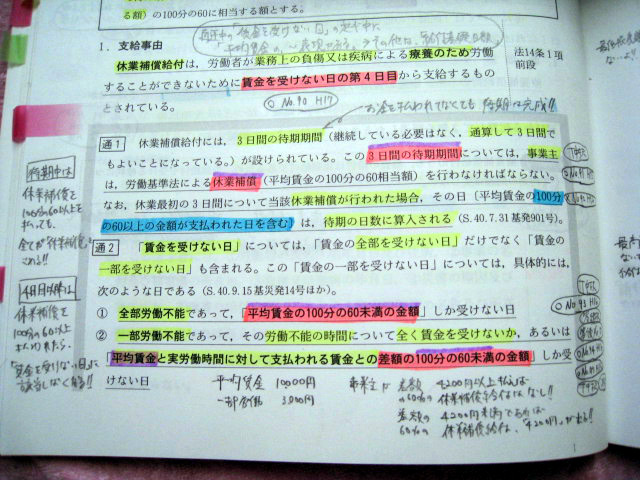 る額）の100分の60に相当する額とする。
1．支給事由
休業補償給付は、労働者が業務上の負傷又は疾病による療養のため労働
することができないために賃金を受けない日の第4日目から支給するもの
とされている。
法14条1項
前段
No.90 H17
お金を払われてなくても 待期は完成!!
通1　休業補償給付には、3日間の待期期間（継続している必要はなく、通算して3日間で
もよいことになっている。）が設けられている。この3日間の待期期間については、事業主
は、労働基準法による休業補償（平均賃金の100分の60相当額）を行わなければならない。
なお、休業最初の3日間について当該休業補償が行われた場合、その日（平均賃金の100分
の60以上の金額が支払われた日を含む）は、待期の日数に算入される（S.40.7.31基発901号）。
通2　「賃金を受けない日」については、「賃金の全部を受けない日」だけでなく「賃金の
一部を受けない日」も含まれる。この「賃金の一部を受けない日」については、具体的には、
次のような日である（S.40.9.15基災発14号ほか）。
①　全部労働不能であって、「平均賃金の100分の60未満の金額」しか受けない日
②　一部労働不能であって、その労働不能の時間について全く賃金を受けないか、あるいは
「平均賃金と実労働時間に対して支払われる賃金との差額の100分の60未満の金額」しか受
けない日
平均賃金 10000円
一部労働 3000円
事業主が
差額の60%の
4200円以上払えば
休業補償給付はなし!!
差額の60%の
4200円未満であれば
休業補償給付は、「4200円」が出る!!
待期中は
休業補償を
100分の60以上
払っても、
全てが休業補償と
される!!
4日目以降は
休業補償を
100分の60以上
払われたら、
「賃金を受けない日」に
該当しなくなる!!